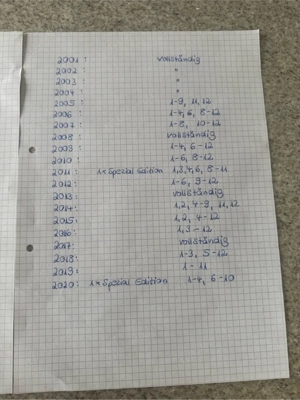 2001: vollständig
2002: "
2003: "
2004: "
2005: 1-9, 11, 12
2006: 1-4, 6, 8-12
2007: 1-8, 10-12
2008: vollständig
2009: 1-4, 6-12
2010: 1-6, 8-12
2011: 1x Spezial Edition 1,3,4,6, 8-11
2012: 1-6, 9-12
2013: vollständig
2014: 1,2, 4-9, 11, 12
2015: 1,2, 4-12
2016: 1, 3-12
2017: vollständig
2018: 1-3, 5-12
2019: 1-11
2020: 1x Spezial Edition 1-4, 6-10